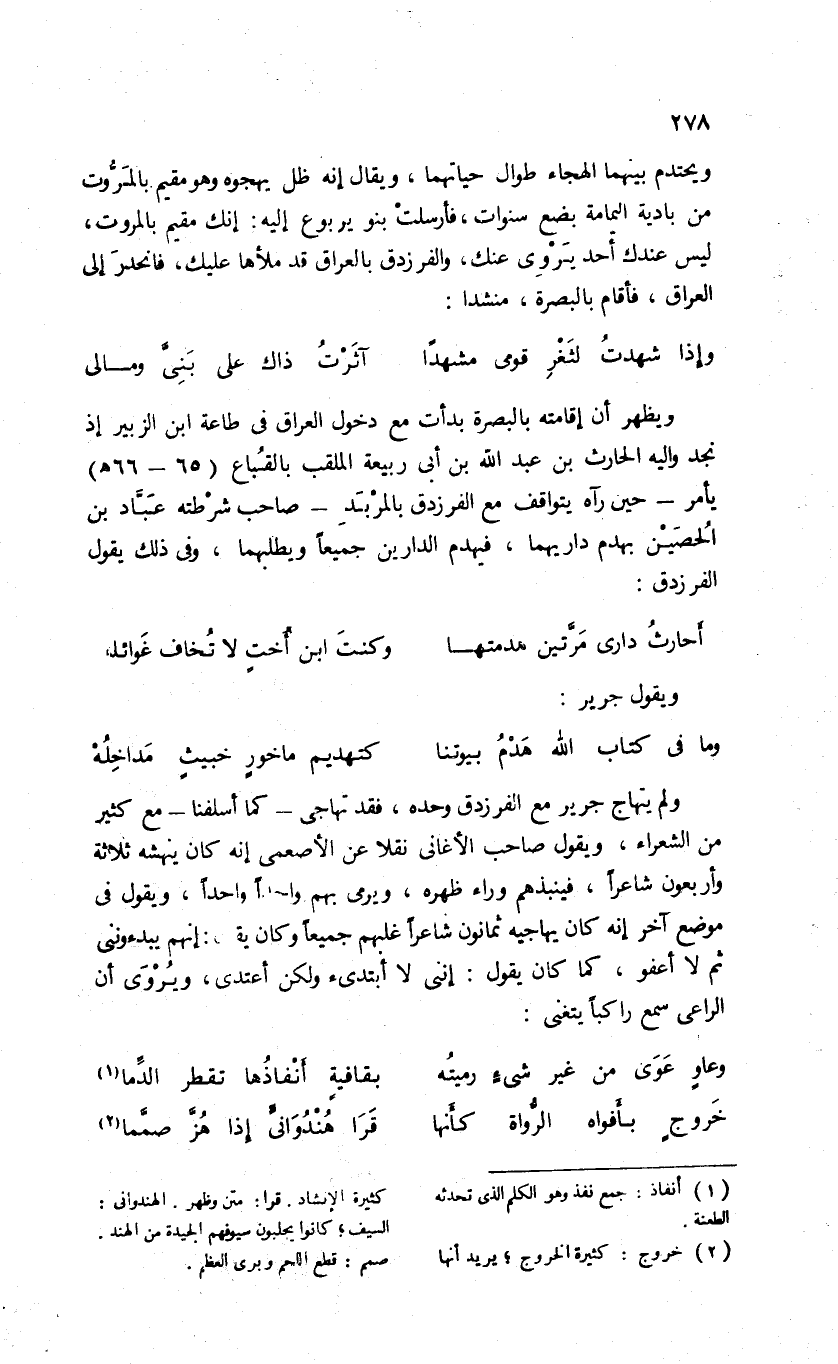 ٢٧٨
ويحتدم بينهما الهجاء طوال حياتهما ، ويقال إنه ظل يهجوه وهو مقيم بالمَرُّوت
من بادية اليمامة بضع سنوات ، فأرسلتْ بنو يربوع إليه : إنك مقيم بالمروت ،
ليس عندك أحد يَرْوِى عنك، والفرزدق بالعراق قد ملأها عليك، فانحدرَ إلى
العراق ، فأقام بالبصرة ، منشدا :
وإذا شهدتُ لثَغْرِ قومى مشهدًا آثَرْتُ ذاك على بَنِىَّ ومـالى
ويظهر أن إقامته بالبصرة بدأت مع دخول العراق فى طاعة ابن الزبير إذ
نجد واليه الحارث بن عبد الله بن أبى ربيعة الملقب بالقُباع ( ٦٥ – ٦٦ه)
يأمر – حين رآه يتواقف مع الفرزدق بالمرْبَد – صاحب شرْطته عَبَّاد بن
الحُصَيْن بهدم داريهما ، فيهدم الدارين جميعاً ويطلبهما ، وفى ذلك يقول
الفرزدق :
أَحارثُ دارى مَرَّتين هدمتهـا وكنتَ ابن أُختٍ لا تُخاف غَوائله
ويقول جرير :
وما فى كتاب الله هَدْمُ بيوتنا كتهديم ماخورٍ خبيثٍ مَداخِلُهْ
ولم يتهاج جرير مع الفرزدق وحده ، فقد تهاجى – كما أسلفنا – مع كثير
من الشعراء ، ويقول صاحب الأغانى نقلا عن الأصعمى إنه كان ينهشه ثلاثة
وأربعون شاعراً ، فينبذهم وراء ظهره ، ويرمى بهم واحداً واحداً ، ويقول فى
موضع آخر إنه كان يهاجيه ثمانون شاعراً غلبهم جميعاً وكان :إنهم يبدءوننى
ثم لا أعفو ، كما كان يقول : إننى لا أبتدىء ولكن أعتدى ، ويُرْوَى أن
الراعى سمع راكباً يتغنى :
وعاوٍ عَوَى من غير شىءٍ رميتُه بقافيةٍ أَنْفاذُها تقطر الدِّما(١)
خَروجٍ بأفواه الرُّواة كأنها قَرَا هُنْدُوَانىٍّ إذا هُزَّ صمَّما(٢)
(١) أنفاذ : جمع نفذ وهو الكلم الذى تحدثه
الطعنة .
(٢) خروج : كثيرة الخروج ؛ يريد أنها
كثيرة الإنشاد . قرا : متن وظهر . الهندوانى :
السيف ؛ كانوا يجلبون سيوفهم الجيدة من الهند .
صمم : قطع اللحم وبرى العظم .